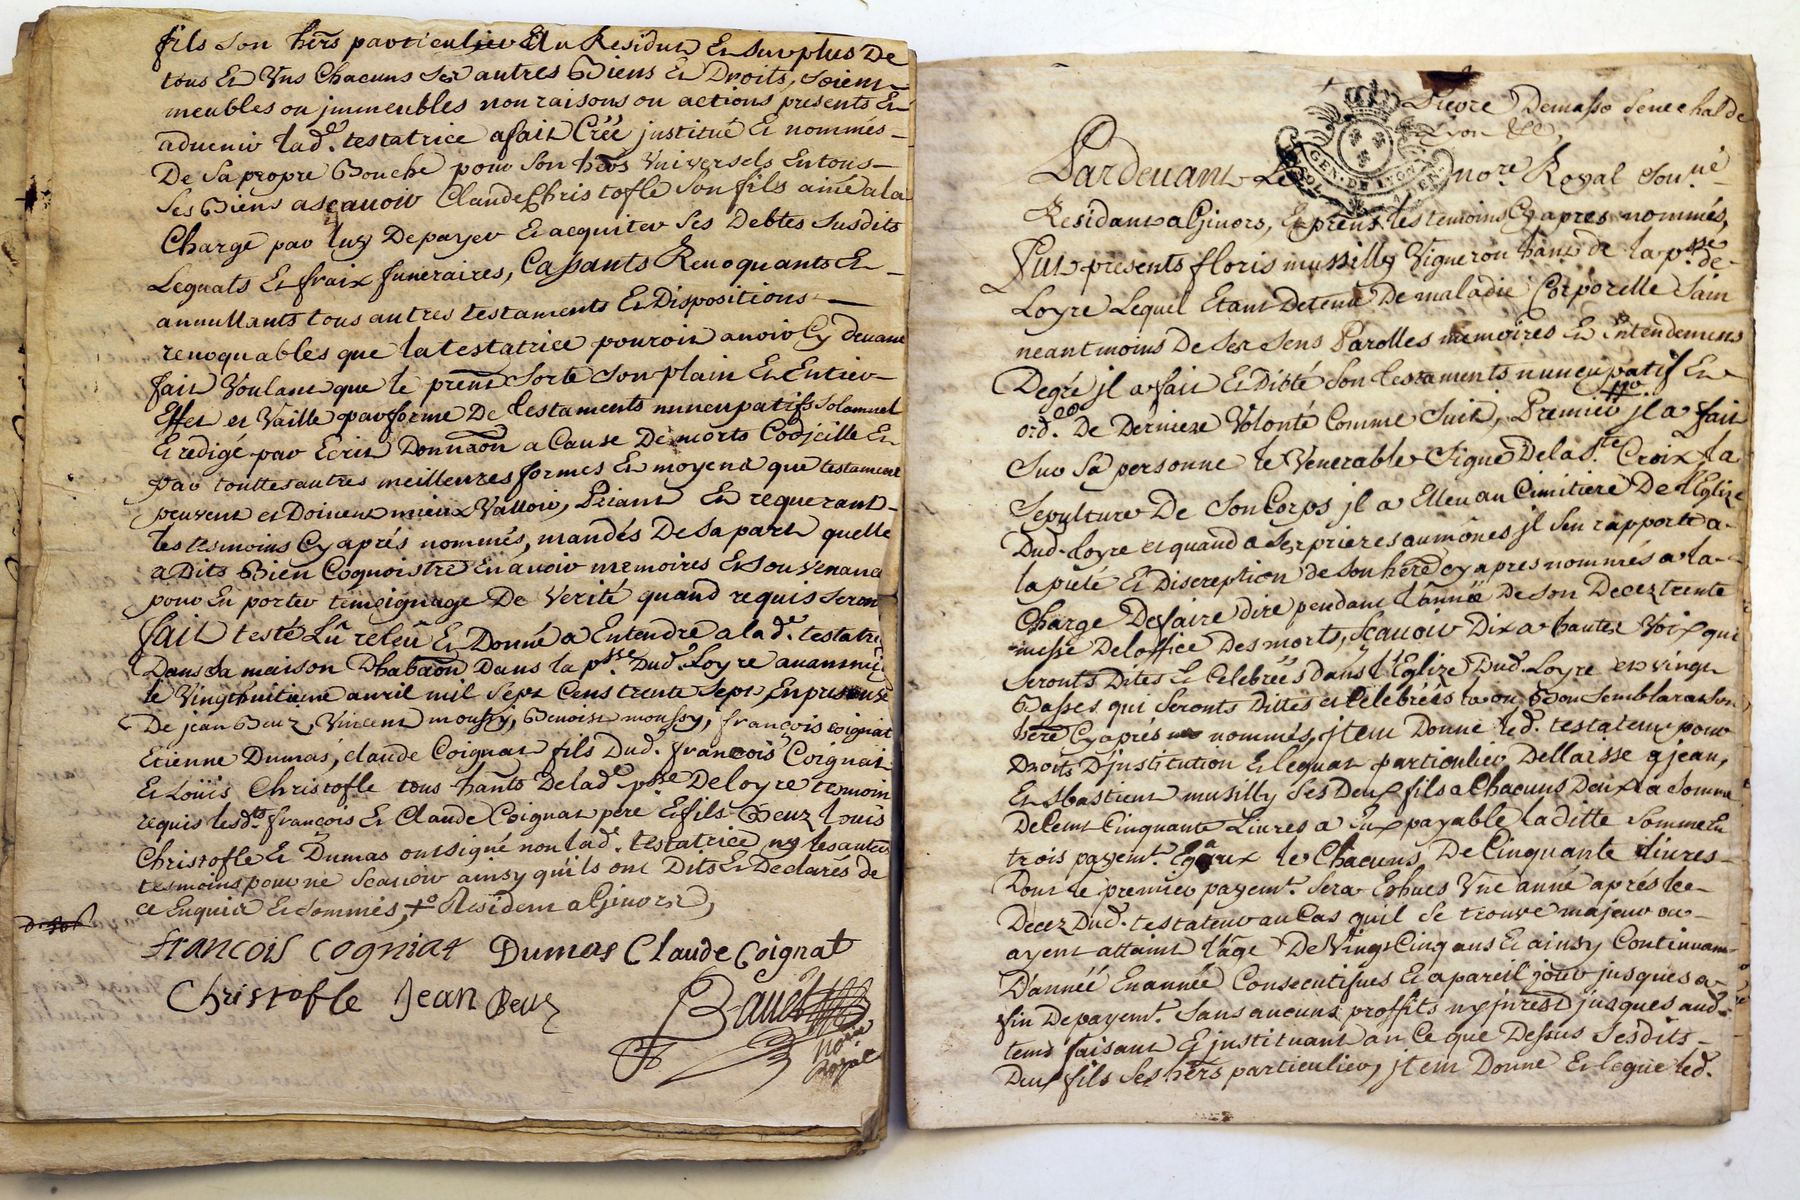 fils son hērs particulier Et Au Residut Et surplus De
tous Et Vns Chacuns Ses autres Biens Et Droits, soient
meubles ou jmmeubles nom raisons ou actions presents Et
aduenir lad.e testatrice a fait Créé justitué Et nommés
De Sa propre Bouche pour son hērs Vniversels En tous
ses Biens a scauoir Claude Christofle son fils ainé a la
Charge par luy De payer Et acquiter ses Debtes susdits
Leguats Et fraix funeraires, Cassants Reuoquants Et
annullants tous autres testaments Et Dispositions
reuoquables que la testatrice pouroit auoir Cy deuant
fait Voulant que le prent Sorte Son plain Et Entier
Effet et Vaille par forme De testaments nuncupatifs Solamnel
Et redigé par Ecrit Donnaōn a Cause De morts Codjcille Et
par touttes autres meilleures formes Et moyens que testament
peuvent et Doiuent mieux Valloir, Priant Et requerant
les tesmoins Cy aprés nommés, mandés De Sa part quelle
a Dits Bien Cognoistre En auoir memoires Et Souvenance
pour En porter témoignage De Verité quand requis Seront
fait testé Lû releû Et Donné a Entendre a lad.e testatrice
Dans Sa maison D'habaōn Dans la p.sse Dud. Loyre auanmidy
le Vingthuitieme auril mil Sept Cens trente Sept, En presence
De jean Beuz, Vincent moussy, Benoist moussy, françois coignat
Etienne Dumas, claude Coignat fils Dud. françois Coignat
Et Loüis Christofle tous hants De lad.e p.sse De loyre temoin
requis lesd.ts françois Et Claude Coignat pere Et fils Beuz louis
Christofle Et Dumas ont signé non lad.e testatrice ny les autres
tesmoins pour ne Scauoir ainsy qu'ils ont Dits Et Declarés de
ce Enquis Et Sommés, Resident a Giuors,
francois cogniat Dumas Claude Coignat
Christofle Jean Beuz
Bauet
no.re
Royal
Demasso Senechal de
Lyon
GEN. DE LYON
Pardeuant Le no.re Royal Sou.né
Residant a Giuors, Et prents les temoins Cy apres nommés,
Fut presents floris mussilly Vigneron hant de la p.sse de
Loyre Lequel Etant Detenu De maladie Corporelle Sain
neantmoins De Ses Sens Parolles memoires Et Entendements
De gré jl a fait Et Dicté Son testaments nuncupatif Et
ord.on De Derniere Volonté Comme Suit, Premier jl a fait
Sur Sa personne le Venerable Signe De la S.te Croix La
Sepulture De Son Corps jl a Elleu au Cimitiere De l'Eglize
Dud. Loyre et quand a Ses prieres aumônes jl s'en rapporte a
la pieté Et Discreption de son herē cy apres nommés a la
Charge De faire dire pendant l'année De Son Decez trente
messe De l'office Des morts, Scauoir Dix a hautes Voix qui
Seronts Dites Et Celebrées dans l'Eglize Dud. Loyre et vingt
Basses qui Seronts Dittes et Célébrées la ou Bon Semblara a Son
herē Cy aprés nommés, jtem Donne led. testateur pour
Droits D'justitution Et leguat particulier Dellaisse a jean,
Et Sbastient musilly Ses Deux fils a Chacuns Deux la Somme
De Cent Cinquante Liures a Eux payable laditte Somme En
trois payem.t Egaux le Chacuns De Cinquante Liures
Dont le premier payem.t Sera Eshues Vne anné aprés le
Decez Dud. testateur au Cas quil Se trouve majeur ou
ayent attaint l'âge De Vingt Cinq ans Et ainsy Continuant
D'année En année Consecutifues Et a pareil jour jusques a
fin De payem.t Sans aucuns proffits ny jnrest jusques aud.
tems faisant Et justituant au Ce que Dessus Sesdits
Deux fils Ses hērs particulier, jtem Donne Et legue led.